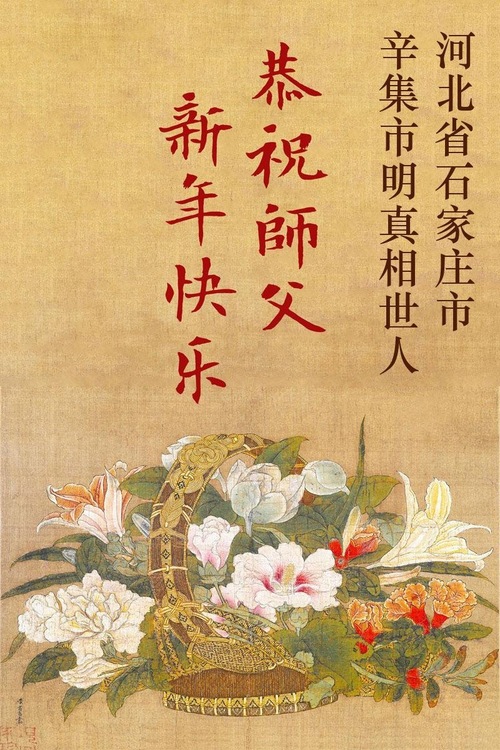 河北省石家庄市
辛集市明真相世人
恭祝師父
新年快乐